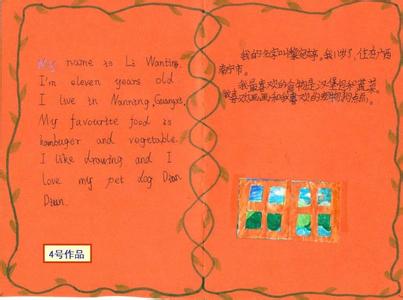 My name is Li Wanting,
I'm eleven years old
I live in Nanning, Guangxi.
My favourite food is
hambuger and vegetable.
I like drawing and I
love my pet dog Dian
Dian.
4号作品
我的名字叫黎婷，我11岁了，住在广西
南宁市。
我最喜欢的食物是汉堡包和蔬菜，
我喜欢画画和我喜欢的宠物狗点点。